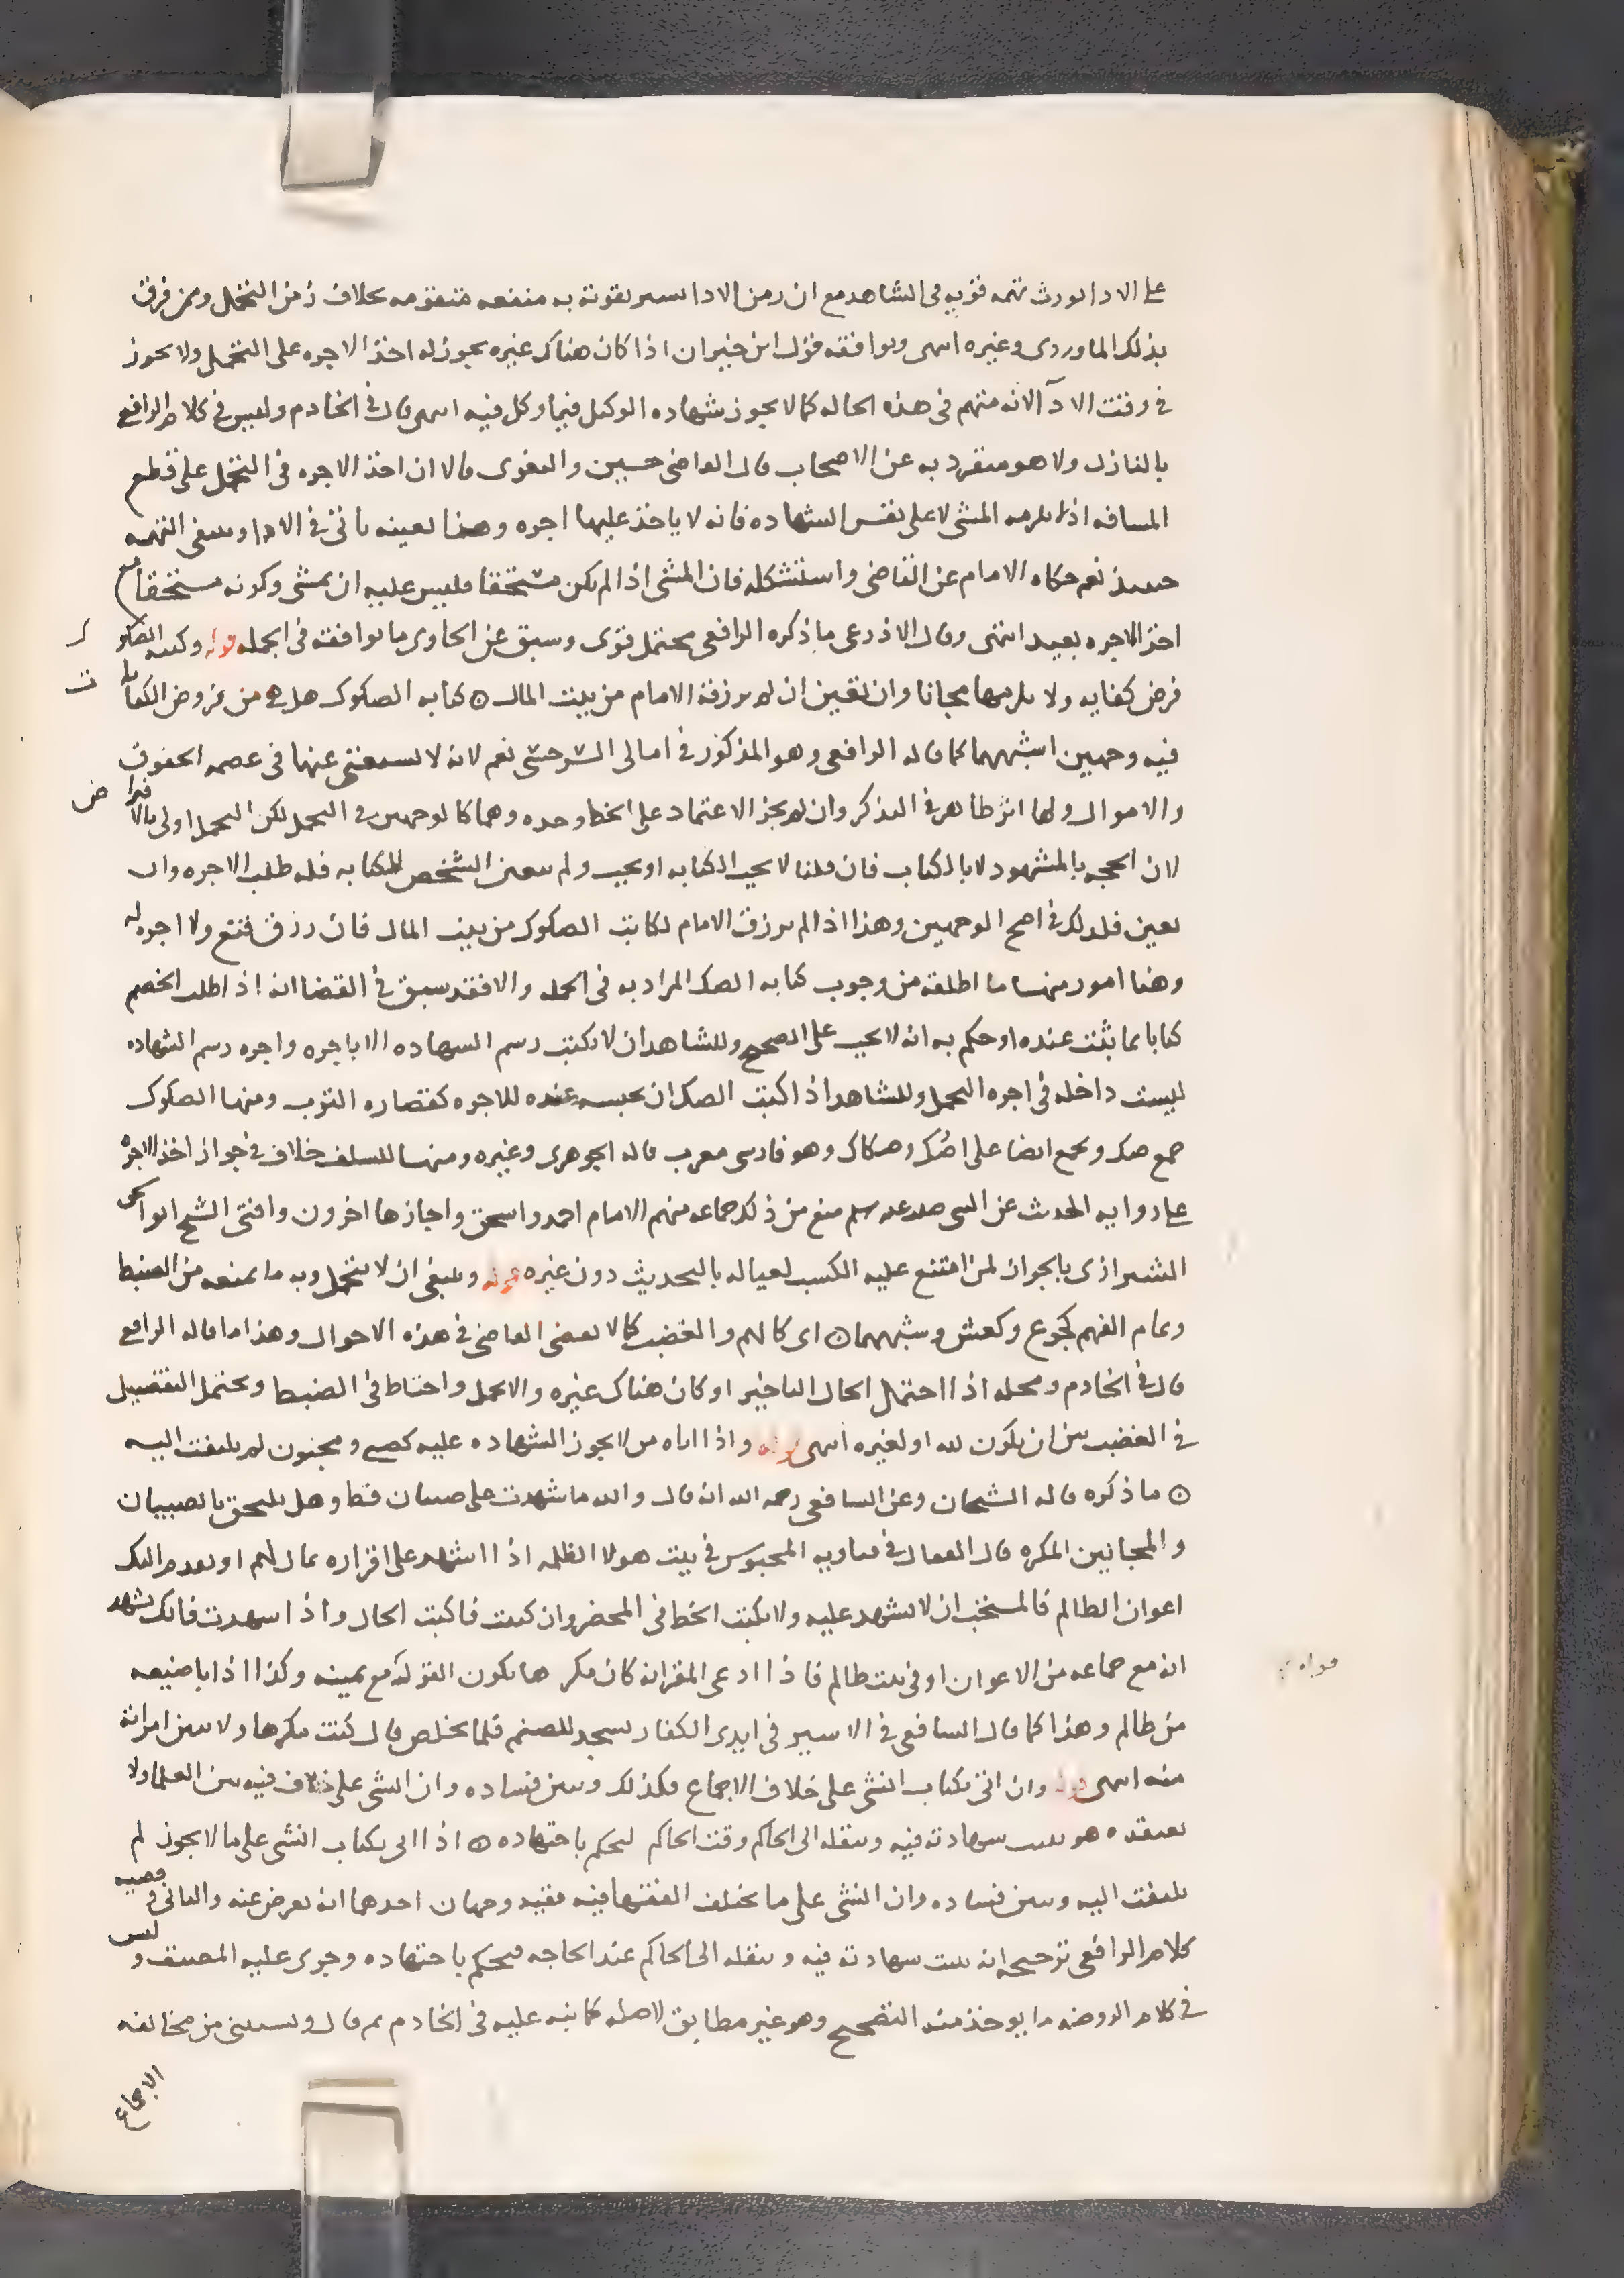 على الادا يورث تهمه قويه فى الشاهد مع ان زمن الادا يسير يفوته به منفعه متقومه بخلاف زمن التحمل وممن فرق
بذلك الماوردى وغيره انتهى ويوافقه قول ابن خيران اذا كان هناك غيره يجوز له اخذ الاجره على التحمل ولا يجوز
فى وقت الادآ لانه متهم فى هذه الحاله كما لا يجوز شهاده الوكيل فيما وكل فيه انتهى قال فى الخادم وليس فى كلام الرافعى
بالنازل ولا هو متفرد به عن الاصحاب قال القاضى حسين والبغوى قالا ان اخذ الاجره فى التحمل على قطع
المسافه اذا لم يلزمه المشى لا على نفس الشهاده فانه لا ياخذ عليها اجره وهذا بعينه ياتى فى الادا وينتفى التهمه
حينئذ نعم حكاه الامام عن القاضى واستشكله فان المشى اذا لم يكن مستحقا فليس عليه ان يمشى وكونه مستحقا مع
اخذ الاجره بعيد انتهى وقال الاذرعى ما ذكره الرافعى محتمل قوى وسبق عن الحاوى ما يوافقه فى الجمله قوله وكتبه الصكوك
فرض كفايه ولا يلزمها مجانا وان تعين ان لم يرزقه الامام من بيت المال ۞ كتابه الصكوك هل هى من فروض الكفايات
فيه وجهين اشبههما كما قاله الرافعى وهو المذكور فى امالى السرخسى نعم لانه لا يستغنى عنها فى عصمه الحقوق
والاموال ولها اثر ظاهر فى التذكر وان لم يجز الاعتماد على الخط وحده وهما كالوجهين فى التحمل لكن التحمل اولى بالافتراض
لان الحجه بالشهود لا بالكتاب فان قلنا لا يجب الكتابه او يجب ولم يتعين الشخص للكتابه فله طلب الاجره وان
تعين فكذلك فى اصح الوجهين وهذا اذا لم يرزق الامام لكاتب الصكوك من بيت المال فان رزق قنع ولا اجره له
وهنا امور منها ما اطلقه من وجوب كتابه الصك المراد به فى الجمله والا فقد سبق فى القضا انه اذا طلب الخصم
كتابا بما يثبت عنده او حكم به انه لا يجب على الصحيح وللشاهد ان لا يكتب رسم الشهاده الا باجره واجره رسم الشهاده
ليست داخله فى اجره التحمل وللشاهد اذا كتب الصك ان يحبسه عنده للاجره كقصاره الثوب ومنها الصكوك
جمع صك ويجمع ايضا على اصُك وصكاك وهو فارسى معرب قاله الجوهرى وغيره ومنها للسلف خلاف فى جواز اخذ الاجره
على روايه الحديث عن النبى صلى الله عليه وسلم منع من ذلك جماعه منهم الامام احمد واسحق واجازها اخرون وافتى الشيخ ابو اسحق
الشيرازى بالجواز لمن امتنع عليه الكسب لعياله بالتحديث دون غيره قوله وينبغى ان لا يتحمل وبه ما يمنعه من الضبط
وتمام الفهم كجوع وكعطش وشبههما ۞ اى كالهم والغضب كما لا يقضى القاضى فى هذه الاحوال وهذا ما قاله الرافعى
قال فى الخادم ومحله اذا احتمل الحال التاخير او كان هناك غيره والا تحمل واحتاط فى الضبط ويحتمل التفصيل
فى الغضب بين ان يكون لله او لغيره انتهى قوله واذا اتاه من لا يجوز الشهاده عليه كصبى ومجنون لم يلتفت اليه
۞ ما ذكره قاله الشيخان وعن الشافعى رحمه الله انه قال والله ما شهدت على صبيان قط وهل يلحق بالصبيان
والمجانين المكره قال القفال فى فتاويه المحبوس فى بيت هولا الظلمه اذا اشهد على اقراره بمال لهم
اعوان الظالم فالمستحب ان لا يشهد عليه ولا يكتب الخط فى المحضر وان كتبت فاكتب الحال واذا شهدت فانك تشهد
انه مع جماعه من الاعوان او فى بيت ظالم فاذا ادعى المقر انه كان مكرها يكون القول له مع يمينه وكذا اذا باع ضيعه
من ظالم وهذا كما قال الشافعى فى الاسير فى ايدى الكفار يسجد للصنم فلما تخلص قال كنت مكرها ولا تبين امراته
منه انتهى قوله وان اتى بكتاب انشى على خلاف الاجماع فكذلك وبين فساده وان انشى على خلاف فيه بين العلما ولا
يعتقده هو يثبت شهادته فيه وينقله الى الحاكم وقت الحاكم ليحكم باجتهاده ۞ اذا اتى بكتاب انشى على ما لا يجوز لم
يلتفت اليه وبين فساده وان انشى على ما يختلف الفقها فيه ففيه وجهان احدهما انه يعرض عنه والثانى وقضيه
كلام الرافعى ترجيحه انه يثبت شهادته فيه وينقله الى الحاكم عند الحاجه فيحكم باجتهاده وجرى عليه المصنف وليس
فى كلام الروضه ما يوخذ منه التصحيح وهو غير مطابق لاصله كما نبه عليه فى الخادم ثم قال ويستثنى من مخالفه
الاجماع